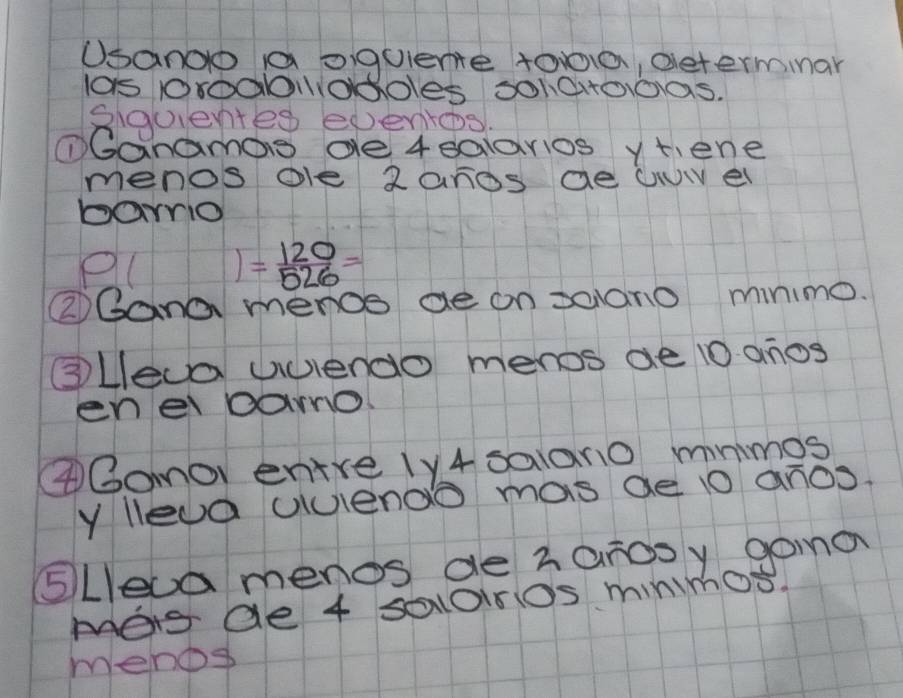 Usando la siguiente tabla, determinar
las probabiliaddes solicitadas.
Siguientes eventos.
① Ganamas de 4 salarios y tiene
menos de 2 años de vivir el
barrio
P( ) = 120/526 =
② Gana menos de un salario minimo.
③ Lleva viviendo menos de 10 años
en el barrio.
④ Gana entre 1 y 4 salario minimos
y lleva viviendo mas de 10 años.
⑤ Lleva menos de 2 años y gana
más de 4 salarios minimos.
menos